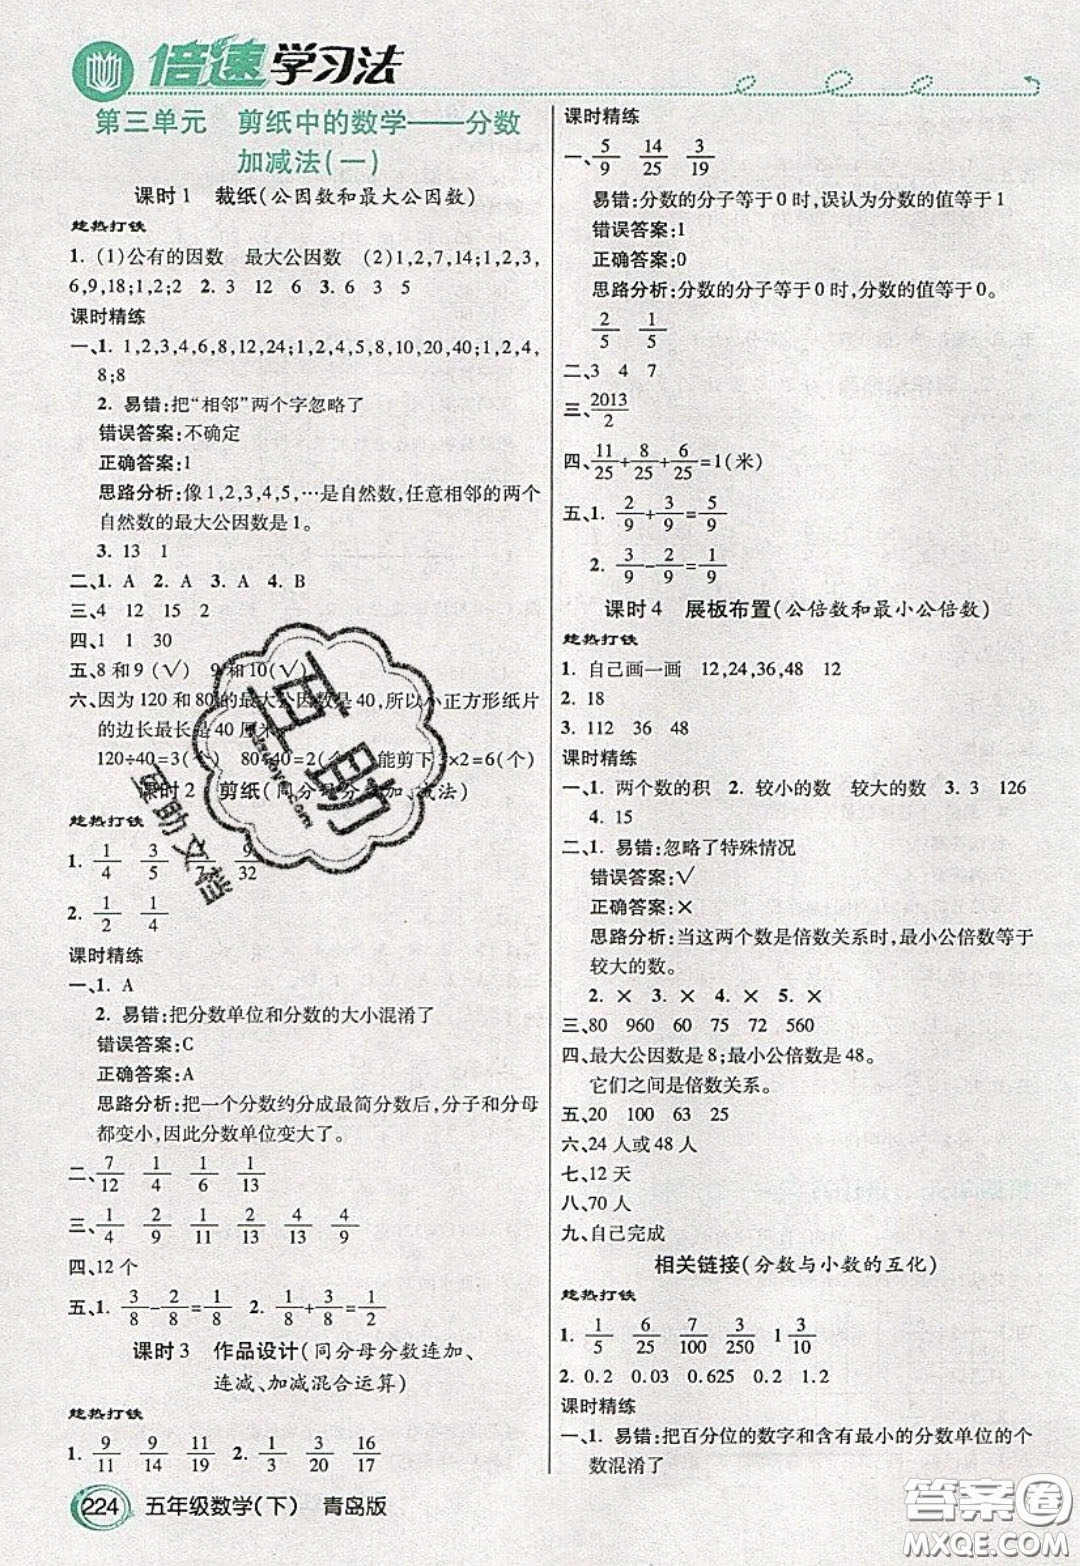 倍速学习法
第三单元　剪纸中的数学——分数
加减法(一)
课时1　裁纸(公因数和最大公因数)
趁热打铁
1. (1)公有的因数　最大公因数　(2)1,2,7,14;1,2,3,
6,9,18;1,2;2　2. 3　12　6　3. 6　3　5
课时精练
一、1. 1,2,3,4,6,8,12,24;1,2,4,5,8,10,20,40;1,2,4,
8;8
2. 易错:把“相邻”两个字忽略了
错误答案:不确定
正确答案:1
思路分析:像1,2,3,4,5,…是自然数,任意相邻的两个
自然数的最大公因数是1。
3. 13　1
二、1. A　2. A　3. A　4. B
三、4　12　15　2
四、1　1　30
五、8和9(√)　9和10(√)
六、因为120和80的最大公因数是40,所以小正方形纸片
的边长最长是40厘米
120÷40=3(个)　80÷40=2(个)　能剪下3×2=6(个)
课时2　剪纸(同分母分数加、减法)
趁热打铁
1. 1/4　3/5　/7　9/32
2. 1/2　1/4
课时精练
一、1. A
2. 易错:把分数单位和分数的大小混淆了
错误答案:C
正确答案:A
思路分析:把一个分数约分成最简分数后,分子和分母
都变小,因此分数单位变大了。
二、7/12　1/4　1/6　1/13
三、1/4　2/9　1/11　2/13　4/13　4/9
四、12个
五、1. 3/8-2/8=1/8　2. 1/8+3/8=1/2
课时3　作品设计(同分母分数连加、
连减、加减混合运算)
趁热打铁
1. 9/11　9/14　11/19　2. 1/3　3/4　16/17
224　五年级数学(下)　青岛版
课时精练
一、5/9　14/25　3/19
易错:分数的分子等于0时,误认为分数的值等于1
错误答案:1
正确答案:0
思路分析:分数的分子等于0时,分数的值等于0。
2/5　1/5
二、3　4　7
三、2013/2
四、11/25+8/25+6/25=1(米)
五、1. 2/9+3/9=5/9
2. 3/9-2/9=1/9
课时4　展板布置(公倍数和最小公倍数)
趁热打铁
1. 自己画一画　12,24,36,48　12
2. 18
3. 112　36　48
课时精练
一、1. 两个数的积　2. 较小的数　较大的数　3. 3　126
4. 15
二、1. 易错:忽略了特殊情况
错误答案:√
正确答案:×
思路分析:当这两个数是倍数关系时,最小公倍数等于
较大的数。
2. ×　3. ×　4. ×　5. ×
三、80　960　60　75　72　560
四、最大公因数是8;最小公倍数是48。
它们之间是倍数关系。
五、20　100　63　25
六、24人或48人
七、12天
八、70人
九、自己完成
相关链接(分数与小数的互化)
趁热打铁
1. 1/5　6/25　7/100　3/250　1 3/10
2. 0.2　0.03　0.625　0.2　1.2
课时精练
一、1. 易错:把百分位的数字和含有最小的分数单位的个
数混淆了
互助
互助文档
答案圈
MXQE.COM